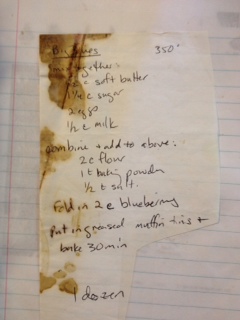 350°
together:
c soft butter
1 1/4 c sugar
2 eggs
1/2 c milk
combine + add to above:
2 c flour
1 t baking powder
1/2 t salt.
Fold in 2 c blueberries
put in greased muffin tins +
bake 30 min
1 dozen